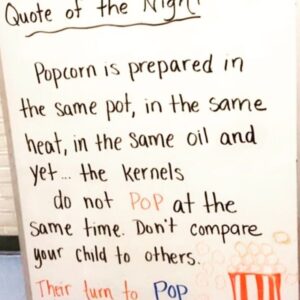 Quote of the Night
Popcorn is prepared in
the same pot, in the same
heat, in the same oil and
yet... the kernels
do not POP at the
same time. Don't compare
your child to others.
Their turn to POP